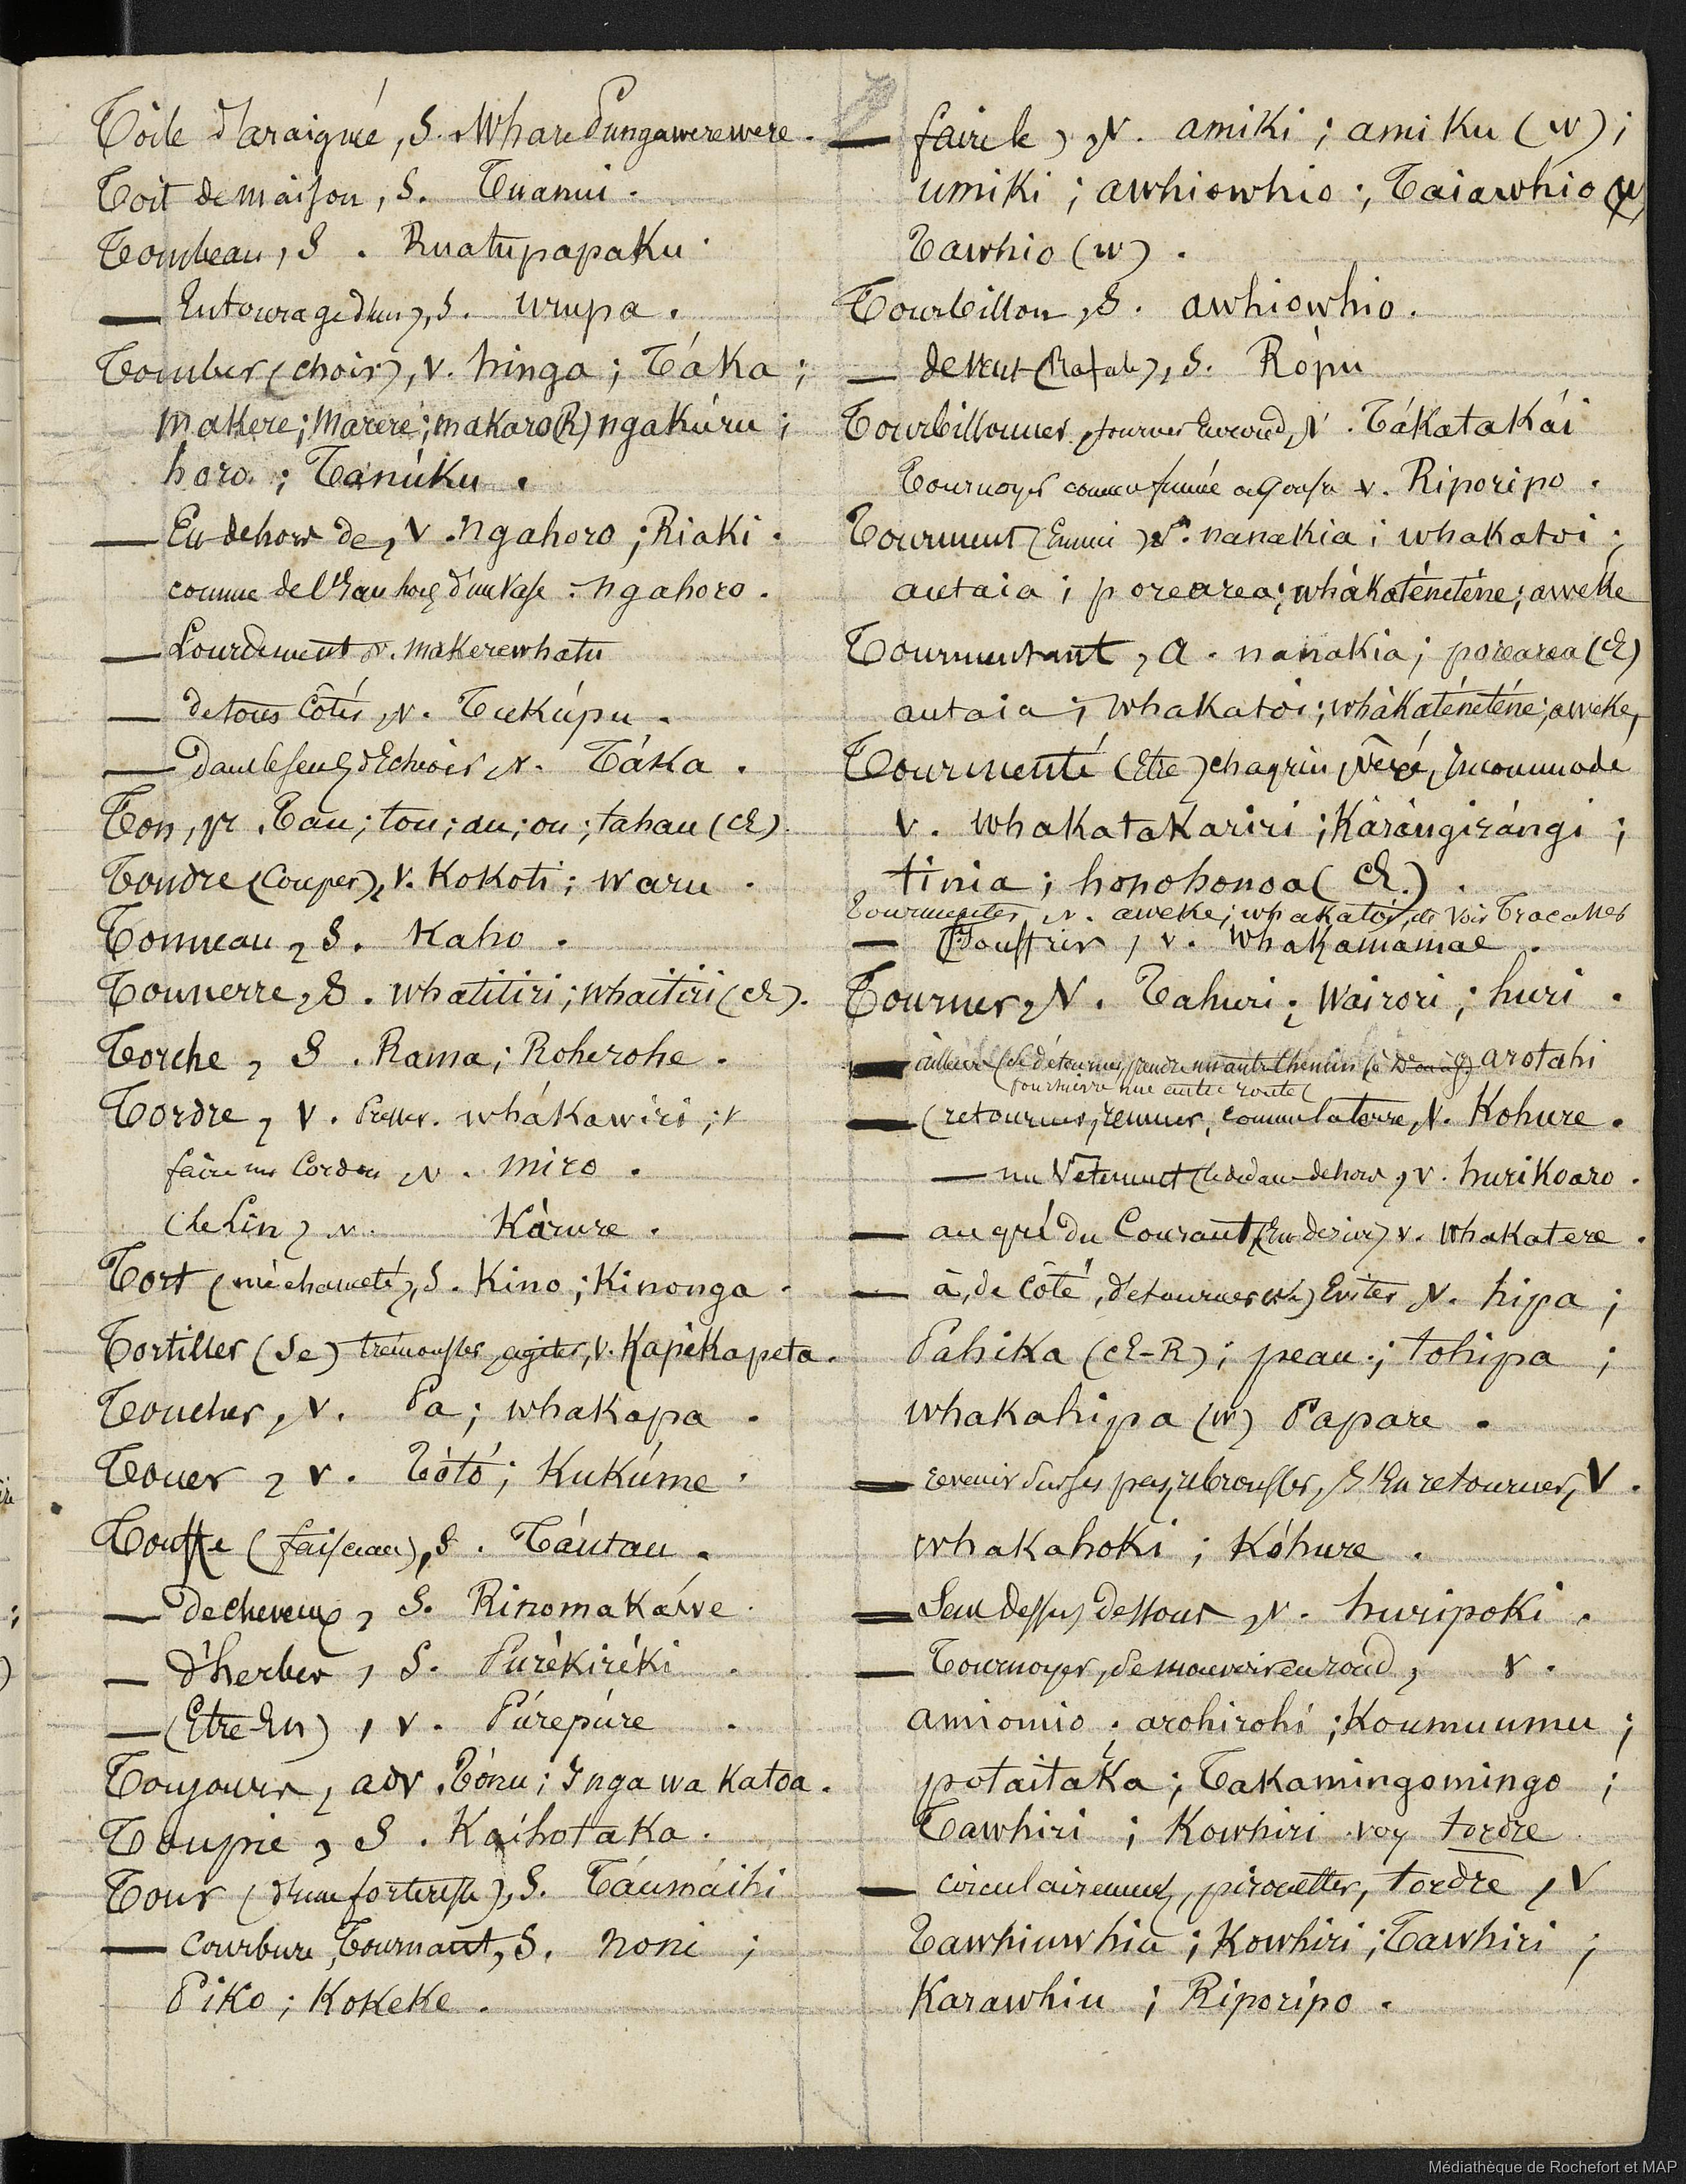 Toile d'araignée, S. Whare Pungawerewere.
Toit de maison, S. Tuanui.
Tombeau, S. Ruatupapaku.
— Entourage d'un), S. urupa.
Tomber (choir), v. hinga; Táka;
makere; marere; makaro(R) ngakúru;
horo; Tanúku.
— En dehors de, v. ngahoro; Riaki.
comme de l'Eau hors d'un Vase : ngahoro.
— Lourdement v. makerewhatu
— de tous Côtés, v. Tukúpu.
— Dans le sens d'Echoir, v. Táka.
Ton, pr. Tau; tou; au; ou; tahau (E).
Tondre (Couper), v. Kokoti; waru.
Tonneau, S. Kaho.
Tonnerre, S. whatitiri; whaitiri (E).
Torche, S. Rama; Roherohe.
Tordre, v. Presser. whákawiri; v
faire un Cordon, v. miro.
(le Lin) v. Kárure.
Tort (méchanceté), S. Kino; Kinonga.
Tortiller (Se) trémousser, agiter, v. Kapekapeta.
Toucher, v. Pa; whakapa.
Touer, v. Tótó; Kukúme.
Touffe (faisceau), S. Táutau.
— de cheveux, S. Rinomakáwe.
— d'herbes, S. Purékiréki.
— (Etre En), v. Púrepúre.
Toujours, adv. Tónu; I nga wa Katoa.
Toupie, S. Kaíhotaka.
Tour (d'une forteresse), S. Táumáihi
— courbure, Tournant, S. noni;
Piko; Kokeke.
— faire le), v. amiki; amiku (w);
umiki; awhiowhio; Taiawhio (w)
Tawhio (w).
Tourbillon, S. awhiowhio.
— de vent (Rafale), S. Rópu
Tourbillonner, tourner En rond, v. Tákatakái
Tournoyer comme fumée v. Riporipo.
Tourment (Ennui) S. nanakia; whakatoi;
autaia; porearea; whákaténeténe; aweke
Tourmentant, a. nanakia; porearea (E)
autaia; whakatoi; whákaténeténe; aweke,
Tourmenté (Etre) chagrin, Véxé, Incommodé
v. whakatakariri; Kárángirángi;
tinia; honohonoa (E.).
Tourmenter, v. aweke; whakatoi, Voir Tracasser
— (Souffrir, v. whakamamae.
Tourner, v. Tahuri; wairori; huri.
— ailleurs (se détourner, prendre un autre Chemin arotahi
poursuivre une autre route(
— (retourner, remuer, comme la terre, v. Kohure.
— un Vêtement (le dedans dehors, v. hurikoaro.
— au gré du Courant (En dérive) v. whakatere.
— à, de Côté, détourner Eviter v. hipa;
Pahika (E-R); peau; tohipa;
whakahipa (w) Papare.
— revenir sur ses pas, rebrousser, S'En retourner, v.
whakahoki; Kóhure.
— Sens dessus dessous, v. huripoki.
— Tournoyer, se mouvoir en rond, v.
amiomio; arohirohi; Koumuumu;
potaitaka; Takamingomingo;
Tawhiri; Kowhiri voy tordre
— circulairement, pirouetter, tordre, v
Tawhiuwhiu; Kowhiri; Tawhiri;
Karawhiu; Riporipo.
Médiathèque de Rochefort et MAP